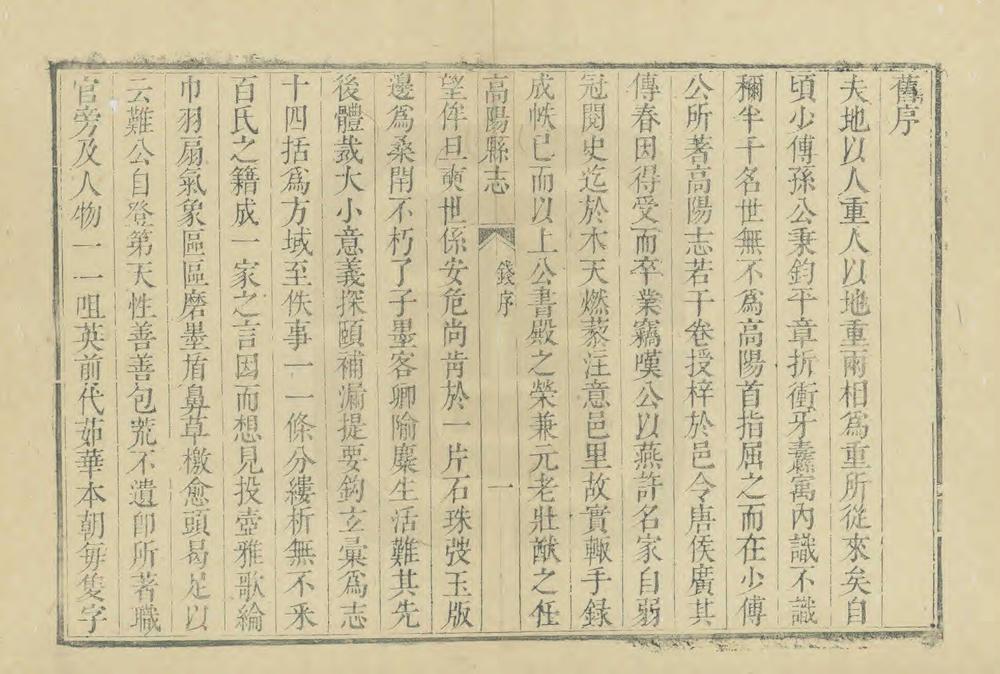 舊序
夫地以人重人以地重兩相爲重所從來矣自
頃少傅孫公秉鈞平章折衝牙纛寓內識不識
稱半千名世無不爲高陽首指屈之而在少傅
公所著高陽志若干卷授梓於邑令唐侯廣其
傳春因得受而卒業竊嘆公以燕許名家自弱
冠閱史迄於木天燃藜注意邑里故實輙手録
成帙已而以上公書殿之榮兼元老壯猷之任
高陽縣志
錢序
一
望侔旦奭世係安危尚肯於一片石珠殽玉版
邊爲桑閈不朽了子墨客卿隃麋生活難其先
後體裁大小意義探頤補漏提要鈎玄彙爲志
十四括爲方域至佚事一一條分縷析無不釆
百氏之籍成一家之言因而想見投壺雅歌綸
巾羽扇氣象區區磨墨盾鼻草檄愈頭曷足以
云難公自登第天性善善包荒不遺卽所著職
官旁及人物一一咀英前代茹華本朝毎隻字